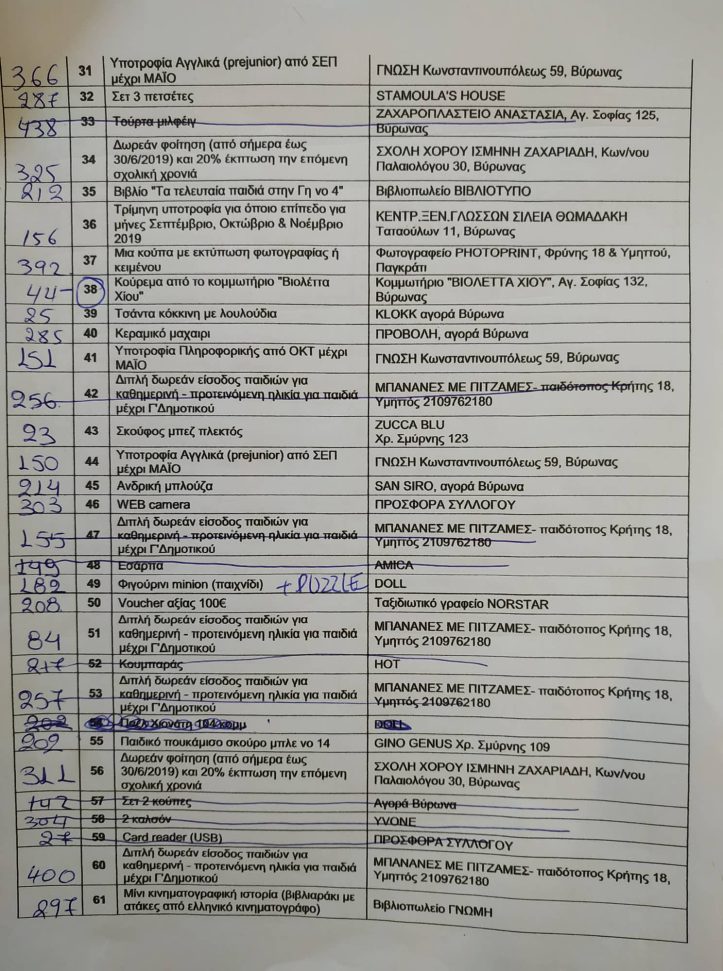 366 31 Υποτροφία Αγγλικά (prejunior) από ΣΕΠ
μέχρι ΜΑΪΟ ΓΝΩΣΗ Κωνσταντινουπόλεως 59, Βύρωνας
287 32 Σετ 3 πετσέτες STAMOULA'S HOUSE
438 33 Τούρτα μιλφέιγ ΖΑΧΑΡΟΠΛΑΣΤΕΙΟ ΑΝΑΣΤΑΣΙΑ, Αγ. Σοφίας 125,
Βύρωνας
325 34 Δωρεάν φοίτηση (από σήμερα έως
30/6/2019) και 20% έκπτωση την επόμενη
σχολική χρονιά ΣΧΟΛΗ ΧΟΡΟΥ ΙΣΜΗΝΗ ΖΑΧΑΡΙΑΔΗ, Κων/νου
Παλαιολόγου 30, Βύρωνας
212 35 Βιβλίο "Τα τελευταία παιδιά στην Γη νο 4" Βιβλιοπωλείο ΒΙΒΛΙΟΤΥΠΟ
156 36 Τρίμηνη υποτροφία για όποιο επίπεδο για
μήνες Σεπτέμβριο, Οκτώβριο & Νοέμβριο
2019 ΚΕΝΤΡ.ΞΕΝ.ΓΛΩΣΣΩΝ ΣΙΛΕΙΑ ΘΩΜΑΔΑΚΗ
Ταταούλων 11, Βύρωνας
392 37 Μια κούπα με εκτύπωση φωτογραφίας ή
κειμένου Φωτογραφείο PHOTOPRINT, Φρύνης 18 & Υμηττού,
Παγκράτι
44 38 Κούρεμα από το κομμωτήριο "Βιολέττα
Χίου" Κομμωτήριο "ΒΙΟΛΕΤΤΑ ΧΙΟΥ", Αγ. Σοφίας 132,
Βύρωνας
25 39 Τσάντα κόκκινη με λουλούδια KLOKK αγορά Βύρωνα
285 40 Κεραμικό μαχαίρι ΠΡΟΒΟΛΗ, αγορά Βύρωνα
151 41 Υποτροφία Πληροφορικής από ΟΚΤ μέχρι
ΜΑΪΟ ΓΝΩΣΗ Κωνσταντινουπόλεως 59, Βύρωνας
256 42 Διπλή δωρεάν είσοδος παιδιών για
καθημερινή - προτεινόμενη ηλικία για παιδιά
μέχρι Γ'Δημοτικού ΜΠΑΝΑΝΕΣ ΜΕ ΠΙΤΖΑΜΕΣ- παιδότοπος Κρήτης 18,
Υμηττός 2109762180
23 43 Σκούφος μπεζ πλεκτός ZUCCA BLU
Χρ. Σμύρνης 123
150 44 Υποτροφία Αγγλικά (prejunior) από ΣΕΠ
μέχρι ΜΑΪΟ ΓΝΩΣΗ Κωνσταντινουπόλεως 59, Βύρωνας
214 45 Ανδρική μπλούζα SAN SIRO, αγορά Βύρωνα
303 46 WEB camera ΠΡΟΣΦΟΡΑ ΣΥΛΛΟΓΟΥ
155 47 Διπλή δωρεάν είσοδος παιδιών για
καθημερινή - προτεινόμενη ηλικία για παιδιά
μέχρι Γ'Δημοτικού ΜΠΑΝΑΝΕΣ ΜΕ ΠΙΤΖΑΜΕΣ- παιδότοπος Κρήτης 18,
Υμηττός 2109762180
149 48 Εσάρπα AMICA
182 49 Φιγούρινι minion (παιχνίδι) + PUZZLE DOLL
208 50 Voucher αξίας 100€ Ταξιδιωτικό γραφείο NORSTAR
84 51 Διπλή δωρεάν είσοδος παιδιών για
καθημερινή - προτεινόμενη ηλικία για παιδιά
μέχρι Γ'Δημοτικού ΜΠΑΝΑΝΕΣ ΜΕ ΠΙΤΖΑΜΕΣ- παιδότοπος Κρήτης 18,
Υμηττός 2109762180
217 52 Κουμπαράς HOT
257 53 Διπλή δωρεάν είσοδος παιδιών για
καθημερινή - προτεινόμενη ηλικία για παιδιά
μέχρι Γ'Δημοτικού ΜΠΑΝΑΝΕΣ ΜΕ ΠΙΤΖΑΜΕΣ- παιδότοπος Κρήτης 18,
Υμηττός 2109762180
202 54 DOLL
202 55 Παιδικό πουκάμισο σκούρο μπλε νο 14 GINO GENUS Χρ. Σμύρνης 109
311 56 Δωρεάν φοίτηση (από σήμερα έως
30/6/2019) και 20% έκπτωση την επόμενη
σχολική χρονιά ΣΧΟΛΗ ΧΟΡΟΥ ΙΣΜΗΝΗ ΖΑΧΑΡΙΑΔΗ, Κων/νου
Παλαιολόγου 30, Βύρωνας
142 57 Σετ 2 κούπες Αγορά Βύρωνα
304 58 2 καλσόν YVONE
27 59 Card reader (USB) ΠΡΟΣΦΟΡΑ ΣΥΛΛΟΓΟΥ
400 60 Διπλή δωρεάν είσοδος παιδιών για
καθημερινή - προτεινόμενη ηλικία για παιδιά
μέχρι Γ'Δημοτικού ΜΠΑΝΑΝΕΣ ΜΕ ΠΙΤΖΑΜΕΣ- παιδότοπος Κρήτης 18,
Υμηττός 2109762180
297 61 Μίνι κινηματογραφική ιστορία (βιβλιαράκι με
ατάκες από ελληνικό κινηματογράφο) Βιβλιοπωλείο ΓΝΩΜΗ